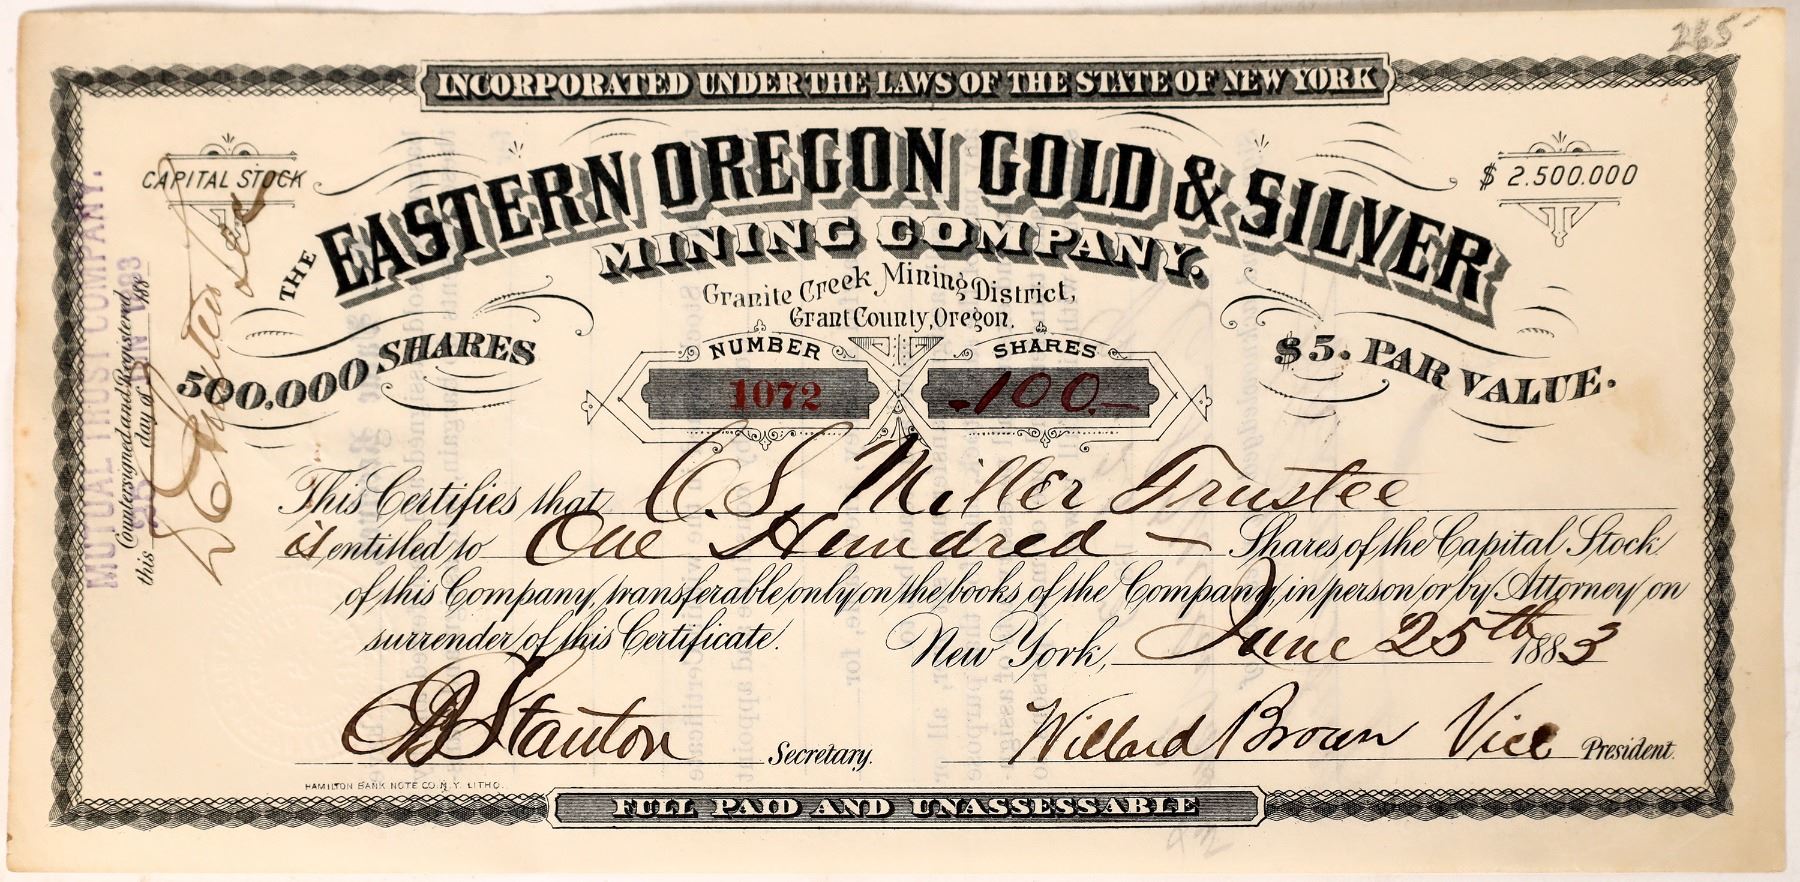 265
INCORPORATED UNDER THE LAWS OF THE STATE OF NEW YORK
CAPITAL STOCK
$ 2.500.000
THE EASTERN OREGON GOLD & SILVER
MINING COMPANY.
Granite Creek Mining District,
Grant County, Oregon.
500.000 SHARES
$5. PAR VALUE.
NUMBER
1072
SHARES
-100.-
This Certifies that C. S. Miller Trustee
is entitled to One Hundred — Shares of the Capital Stock
of this Company, transferable only on the books of the Company, in person or by Attorney on
surrender of this Certificate. New York, June 25th 1883
Stanton Secretary.
Willard Brown Vice President.
HAMILTON BANK NOTE CO. N.Y. LITHO.
FULL PAID AND UNASSESSABLE
MUTUAL TRUST COMPANY.
Countersigned and Registered
this day of 188